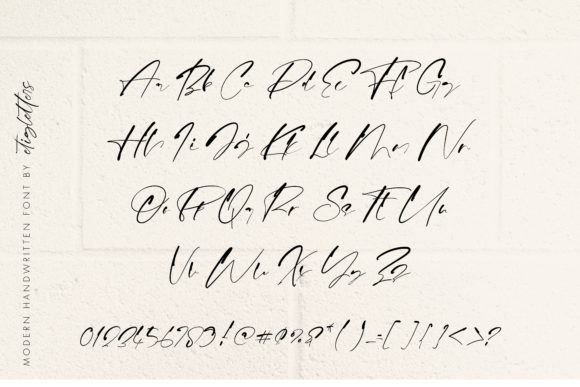 Aa Bb Cc Dd Ee Ff Gg
Hh Ii Jj Kk Ll Mm Nn
Oo Pp Qq Rr Ss Tt Uu
Vv Ww Xx Yy Zz
0123456789!@#$%&*()-=[]{}<>?
MODERN HANDWRITTEN FONT BY etigletters